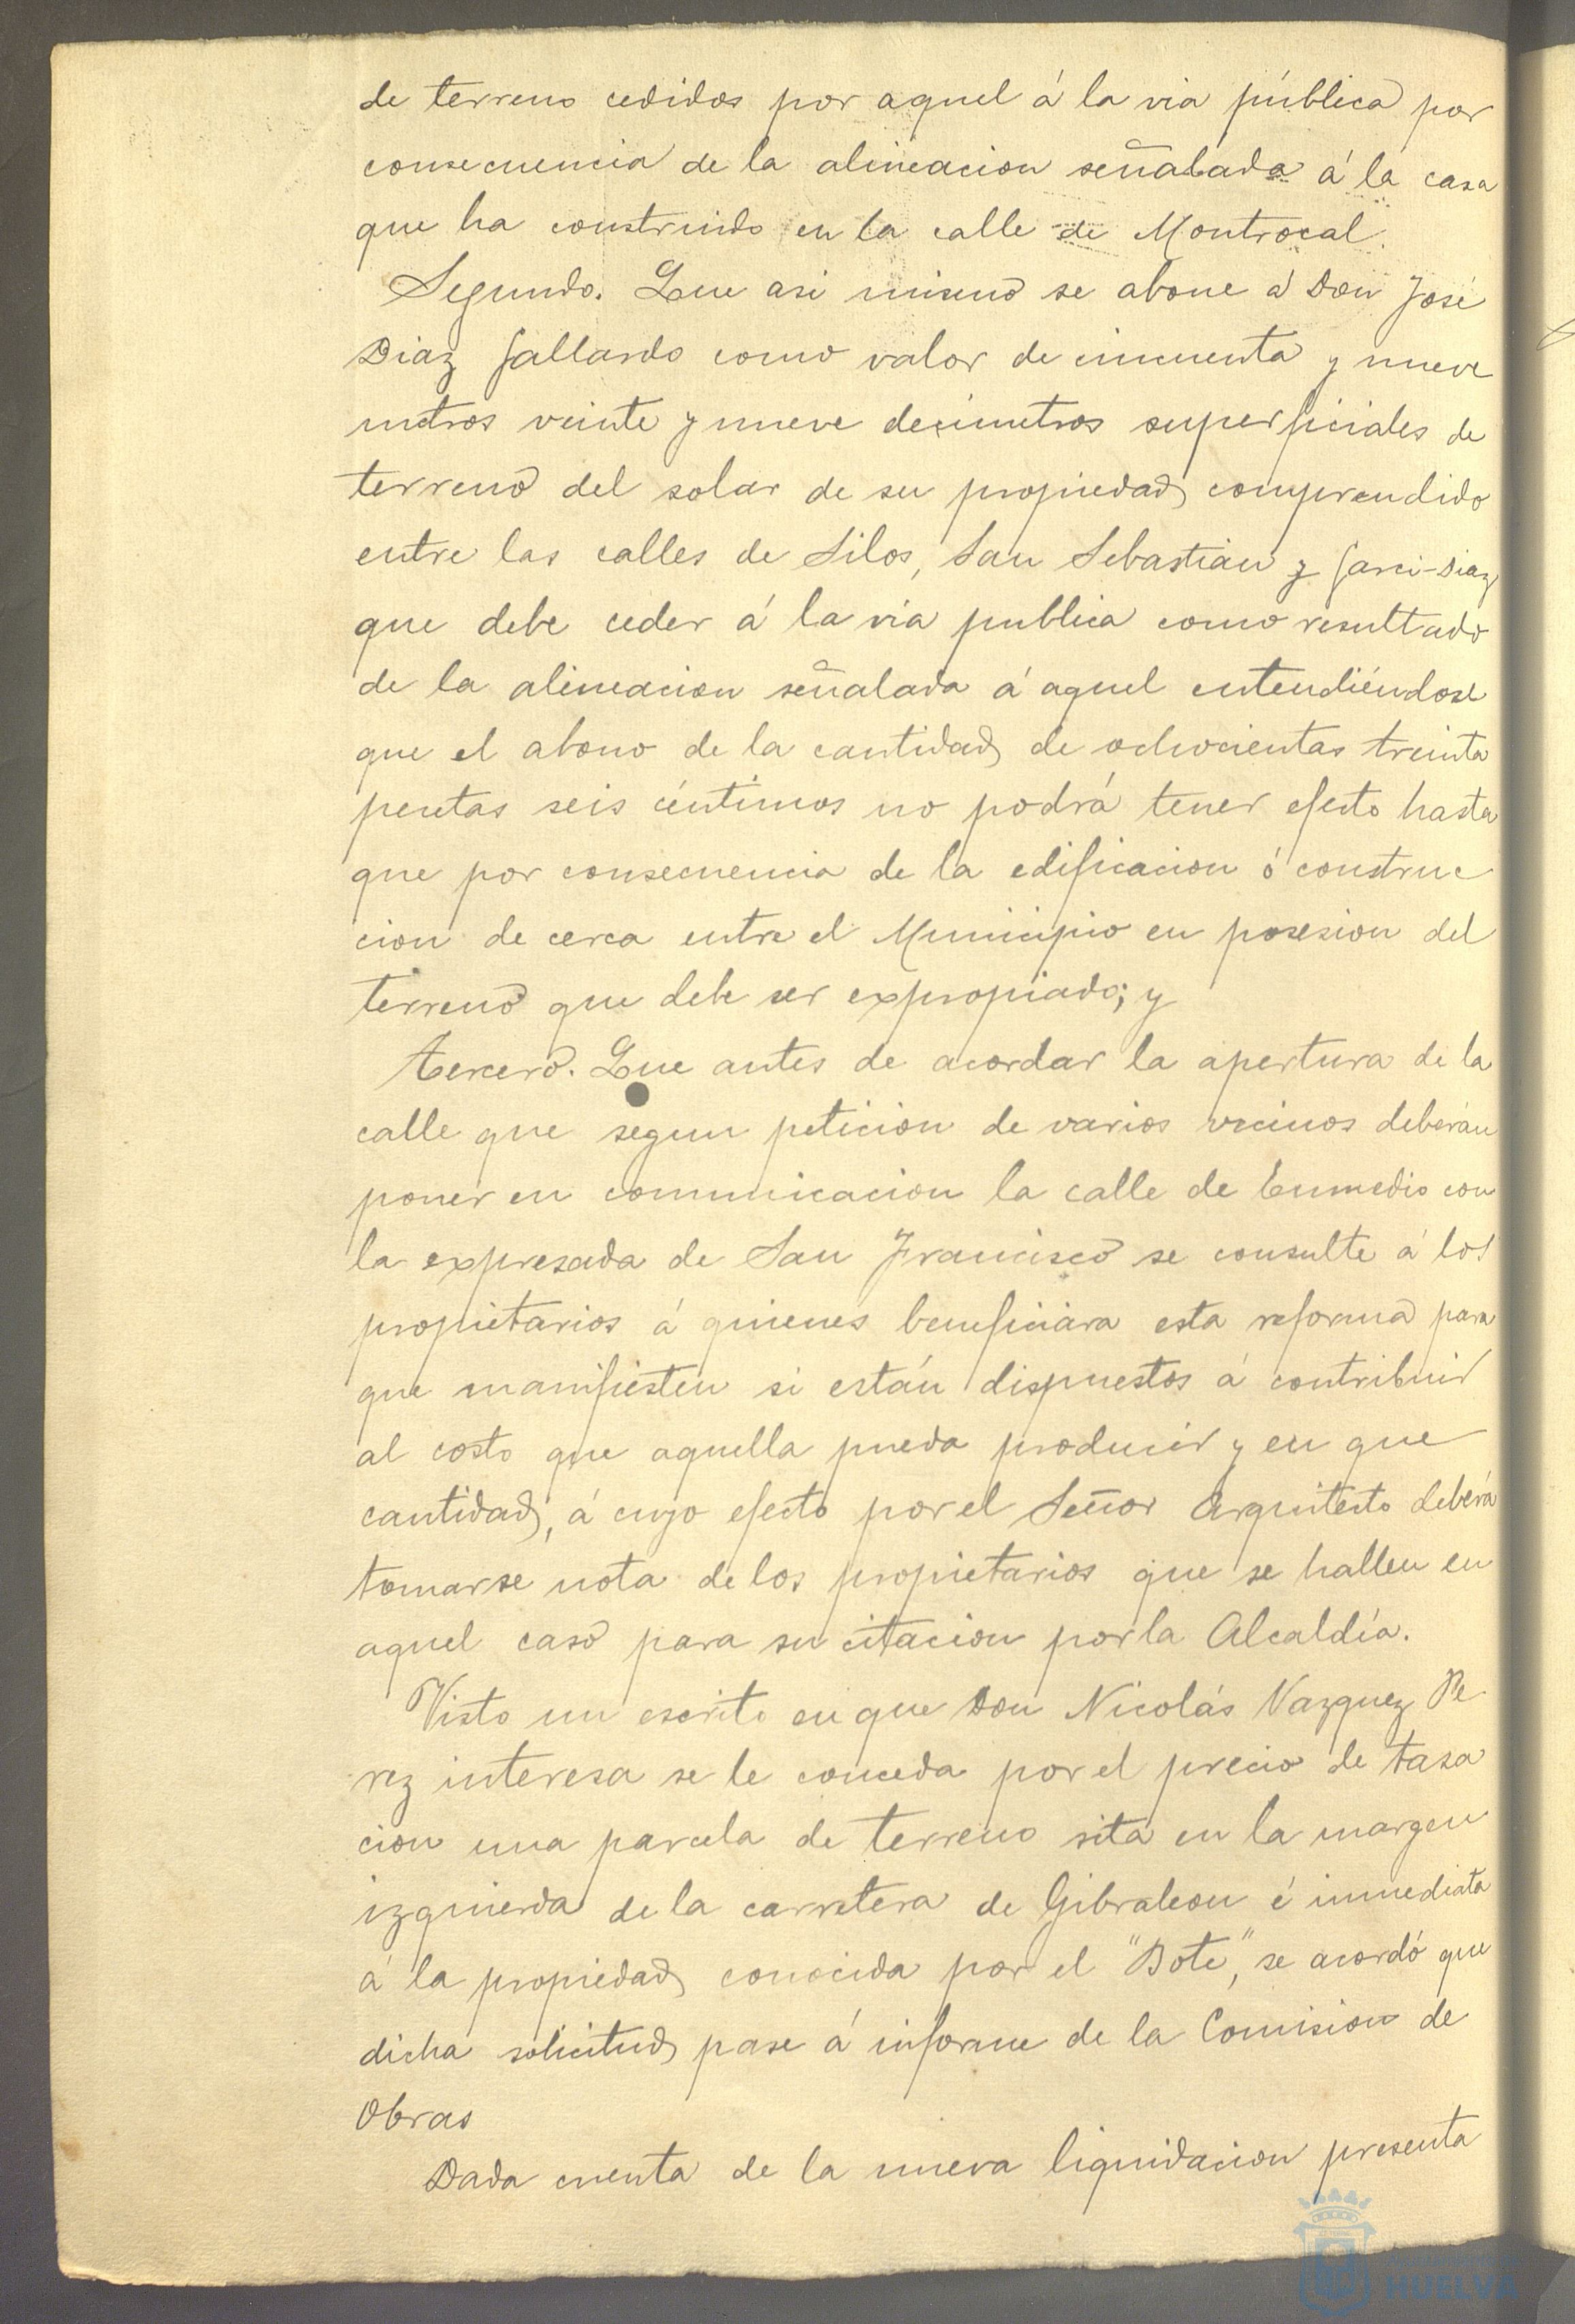 de terreno cedidos por aquel á la via pública por
consecuencia de la alineacion señalada á la casa
que ha construido en la calle de Montrocal.
Segundo. Que asi mismo se abone á Don José
Diaz Gallardo como valor de cincuenta y nueve
metros veinte y nueve decimetros superficiales de
terreno del solar de su propiedad comprendido
entre las calles de Silos, San Sebastian y Garci-Diaz
que debe ceder á la via publica como resultado
de la alineacion señalada á aquel entendiéndose
que el abono de la cantidad de ochocientas treinta
pesetas seis céntimos no podrá tener efecto hasta
que por consecuencia de la edificacion ó construc
cion de cerca entre el Municipio en posesion del
terreno que debe ser expropiado; y
tercero. Que antes de acordar la apertura de la
calle que segun peticion de varios vecinos deberán
poner en comunicacion la calle de Enmedio con
la expresada de San Francisco se consulte á los
propietarios á quienes beneficiára esta reforma para
que manifiesten si están dispuestos á contribuir
al costo que aquella pueda producir y en que
cantidad, á cuyo efecto por el Señor Arquitecto deberá
tomarse nota de los propietarios que se hallen en
aquel caso para su citacion por la Alcaldía.
Visto un escrito en que Don Nicolás Vazquez Pe
rez interesa se le conceda por el precio de tasa
cion una parcela de terreno sita en la margen
izquierda de la carretera de Gibraleon é inmediata
á la propiedad conocida por el "Bote", se acordó que
dicha solicitud pase á informe de la Comision de
Obras
Dada cuenta de la nueva liquidacion presenta
HUELVA